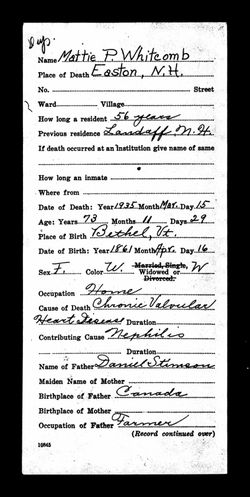 Dup.
Name Mattie P. Whitcomb
Place of Death Easton, N.H.
No. Street
Ward Village
How long a resident 56 years
Previous residence Landaff, N. H.
If death occurred at an institution give name of same
How long an inmate
Where from
Date of Death: Year 1935 Month Mar. Day 15
Age: Years 73 Months 11 Days 29
Place of Birth Bethel, Vt.
Date of Birth: Year 1861 Month Apr. Day 16
Sex F. Color W. Married, Single, Widowed or Divorced. W
Occupation Home
Cause of Death Chronic Valvular
Heart Disease Duration
Contributing Cause Nephitis
Duration
Name of Father Daniel Stimson
Maiden Name of Mother
Birthplace of Father Canada
Birthplace of Mother
Occupation of Father Farmer
(Record continued over)
10845